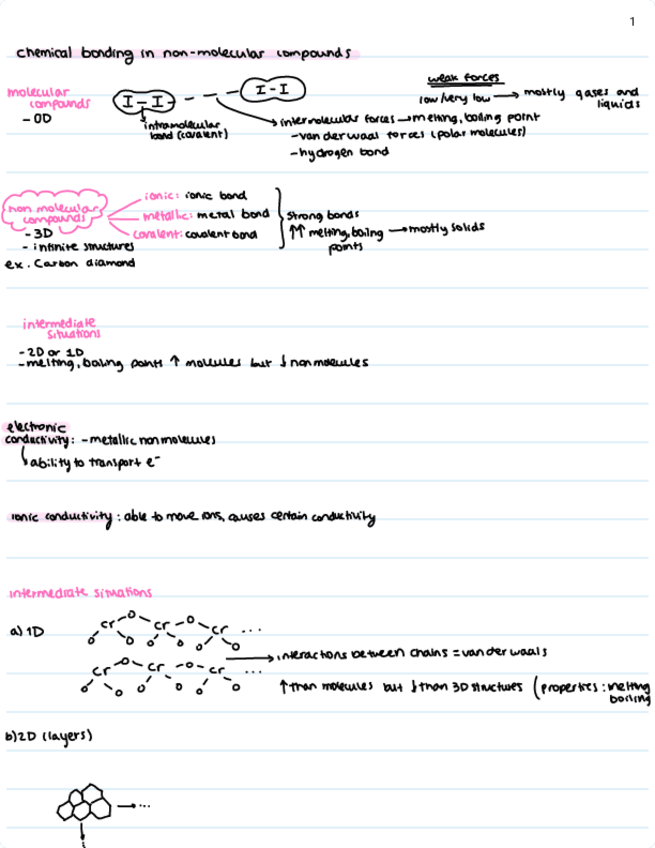 1
chemical bonding in non-molecular compounds
molecular
compounds
- 0D
I - I
I - I
intramolecular
bond (covalent)
weak forces
low/very low → mostly gases and
liquids
intermolecular forces → melting, boiling point
- van der waal forces (polar molecules)
- hydrogen bond
non molecular
compounds
- 3D
- infinite structures
ex. Carbon diamond
ionic: ionic bond
metallic: metal bond
covalent: covalent bond
strong bonds
↑↑ melting, boiling → mostly solids
points
intermediate
situations
- 2D or 1D
- melting, boiling points ↑ molecules but ↓ non molecules
electronic
conductivity: - metallic non molecules
ability to transport e⁻
ionic conductivity: able to move ions, causes certain conductivity
intermediate situations
a) 1D
O O
Cr Cr Cr ...
O O O O O O
O O
Cr Cr Cr ...
O O O O O O
→ interactions between chains = van der waals
↑ than molecules but ↓ than 3D structures (properties: melting
boiling
b) 2D (layers)
→ ...